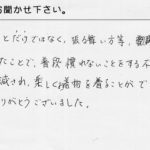 お聞かせ下さい。
とだけではなく、振る舞い方等、
たことで、普段慣れないことをする不
減され、楽しく着物を着ることがで
りがとうございました。